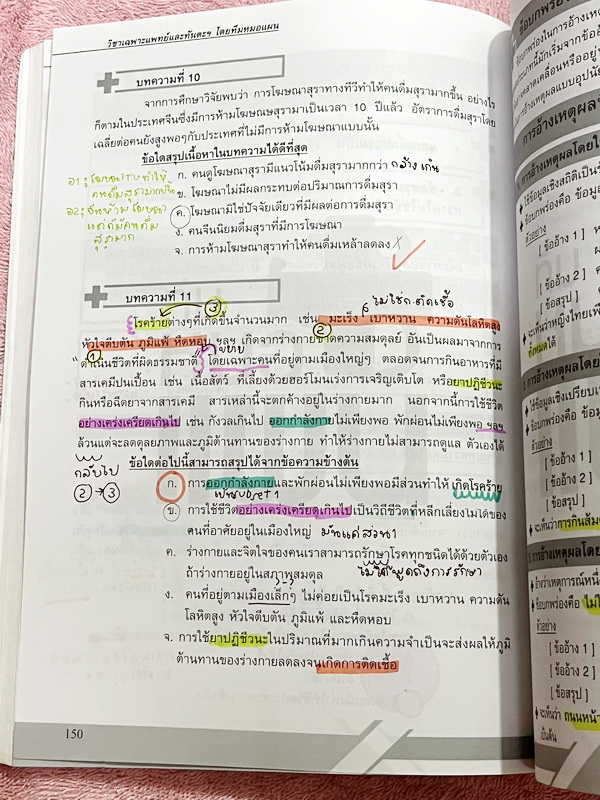 วิชาเฉพาะแพทย์และทันตะฯ โดยทีมหมอแผน
บทความที่ 10
จากการศึกษาวิจัยพบว่า การโฆษณาสุราทางทีวีทำให้คนดื่มสุรามากขึ้น อย่างไร
ก็ตามในประเทศจีนซึ่งมีการห้ามโฆษณษสุรามาเป็นเวลา 10 ปีแล้ว อัตราการดื่มสุราโดย
เฉลี่ยต่อคนยังสูงพอๆกับประเทศที่ไม่มีการห้ามโฆษณาแบบนั้น
ข้อใดสรุปเนื้อหาในบทความได้ดีที่สุด
ก. คนดูโฆษณาสุรามีแนวโน้มดื่มสุรามากกว่า กว้างเกิน
ข. โฆษณาไม่มีผลกระทบต่อปริมาณการดื่มสุรา
ค. โฆษณามิใช่ปัจจัยเดียวที่มีผลต่อการดื่มสุรา
ง. คนจีนนิยมดื่มสุราที่มีการโฆษณา
จ. การห้ามโฆษณาสุราทำให้คนดื่มเหล้าลดลง X
อ1: โฆษณา TV ทำให้
คนดื่มสุรามากขึ้น
อ2: จีนห้ามโฆษณา
แต่ก็มีคนดื่ม
สุรามาก
บทความที่ 11
ไม่ใช่ก.ติดเชื้อ
③
โรคร้ายต่างๆที่เกิดขึ้นจำนวนมาก เช่น มะเร็ง เบาหวาน ความดันโลหิตสูง
②
หัวใจตีบตัน ภูมิแพ้ หืดหอบ ฯลฯ เกิดจากร่างกายขาดความสมดุลย์ อันเป็นผลมาจากการ
① ขยาย
ดำเนินชีวิตที่ผิดธรรมชาติ โดยเฉพาะคนที่อยู่ตามเมืองใหญ่ๆ ตลอดจนการกินอาหารที่มี
สารเคมีปนเปื้อน เช่น เนื้อสัตว์ ที่เลี้ยงด้วยฮอร์โมนเร่งการเจริญเติบโต หรือยาปฏิชีวนะ
กินหรือฉีดยาจากสารเคมี สารเหล่านี้จะตกค้างอยู่ในร่างกายมาก นอกจากนี้การใช้ชีวิต
อย่างเคร่งเครียดเกินไป เช่น กังวลเกินไป ออกกำลังกายไม่เพียงพอ พักผ่อนไม่เพียงพอ ฯลฯ
ล้วนแต่จะลดดุลยภาพและภูมิต้านทานของร่างกาย ทำให้ร่างกายไม่สามารถดูแล ตัวเองได้
ข้อใดต่อไปนี้สามารถสรุปได้จากข้อความข้างต้น
กลับไป
② → ③
ก. การออกกำลังกายและพักผ่อนไม่เพียงพอมีส่วนทำให้ เกิดโรคร้าย
เป็น subset 1
ข. การใช้ชีวิตอย่างเคร่งเครียดเกินไปเป็นวิถีชีวิตที่หลีกเลี่ยงไม่ได้ของ
คนที่อาศัยอยู่ในเมืองใหญ่
ค. ร่างกายและจิตใจของคนเราสามารถรักษาโรคทุกชนิดได้ด้วยตัวเอง
ถ้าร่างกายอยู่ในสภาพสมดุล ไม่ได้พูดถึงการรักษา
ง. คนที่อยู่ตามเมืองเล็กๆ ไม่ค่อยเป็นโรคมะเร็ง เบาหวาน ความดัน
โลหิตสูง หัวใจตีบตัน ภูมิแพ้ และหืดหอบ
จ. การใช้ยาปฏิชีวนะในปริมาณที่มากเกินความจำเป็นจะส่งผลให้ภูมิ
ต้านทานของร่างกายลดลงจนเกิดการติดเชื้อ
150
ข้อบกพร่องใน
การอ้างเหตุผล
1. การอ้างเหตุผลโดยใ
ใช้ข้อมูลเชิงสถิติเป็น
ข้อบกพร่องคือ ข้อมูล
ตัวอย่าง
[ ข้ออ้าง 1 ]
[ ข้ออ้าง 2 ]
[ ข้อสรุป ]
จะเห็นว่าหญิงไทย
ทั้งหมดได้
การอ้างเหตุผลโดย
ใช้ข้อมูลเชิงเปรียบ
ข้อบกพร่องคือ ข้อมู
ตัวอย่าง
[ ข้ออ้าง 1 ]
[ ข้ออ้าง 2 ]
[ ข้อสรุป ]
จะเห็นว่าการกินส้ม
การอ้างเหตุผลโดย
อ้างว่าเหตุการณ์หนึ่
ข้อบกพร่องคือ ไม่
ตัวอย่าง
[ ข้ออ้าง 1 ]
[ ข้ออ้าง 2 ]
[ ข้อสรุป ]
จะเห็นว่า ถนนหน้า
เป็นต้น